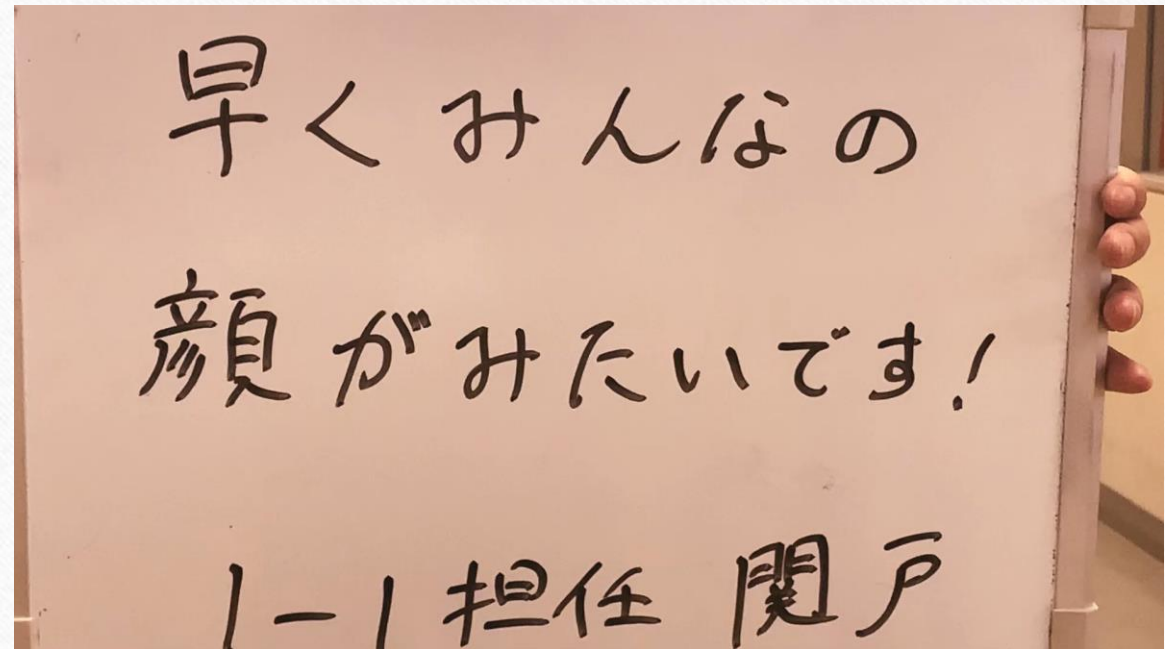 早くみんなの
顔がみたいです!
1-1担任 関戸